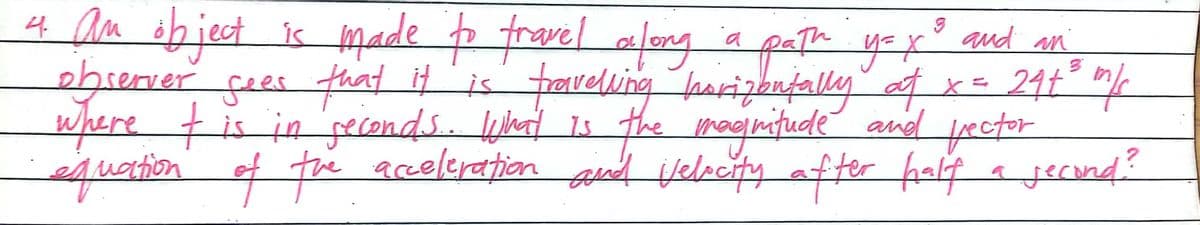 4. An object is made to travel along a path y=x³ and an
observer sees that it is travelling horizontally at x = 24t³ m/s
where t is in seconds.. What is the magnitude and vector
equation of the acceleration and velocity after half a second?